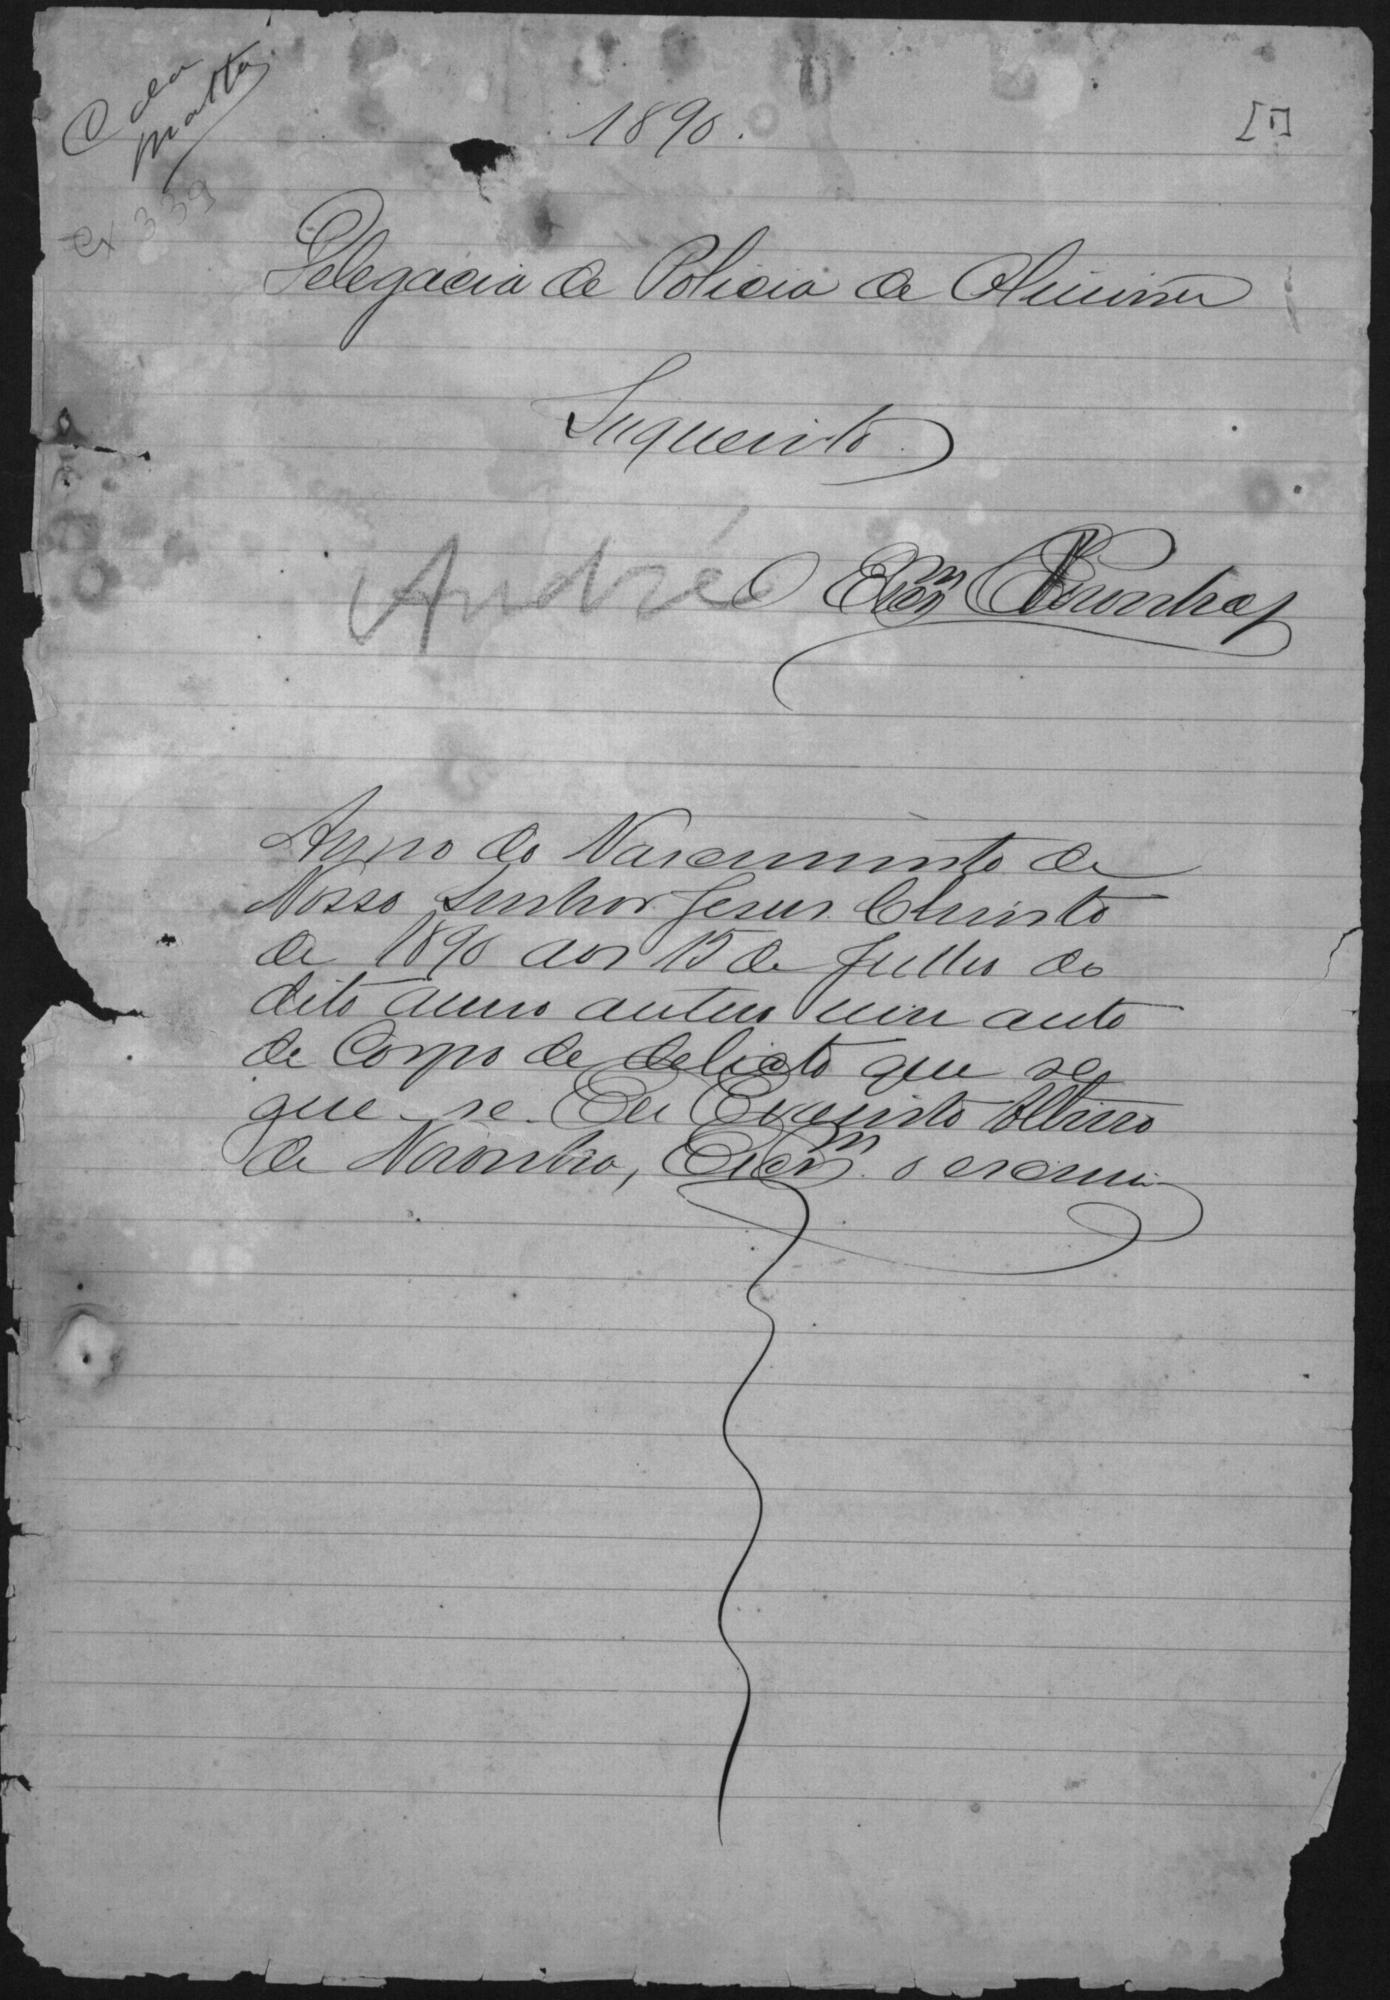 C da
Matta
Cx 339
1890.
[1]
Delegacia de Policia de
Inquerito
André O Escm Noronha
Anno do Nascimento de
Nosso Senhor Jesus Christo
de 1890 aos 15 de Julho do
dito anno autuo um auto
de Corpo de delicto que se
gue-se. Eu Evaristo Albino
de Noronha, Escm o escrevi